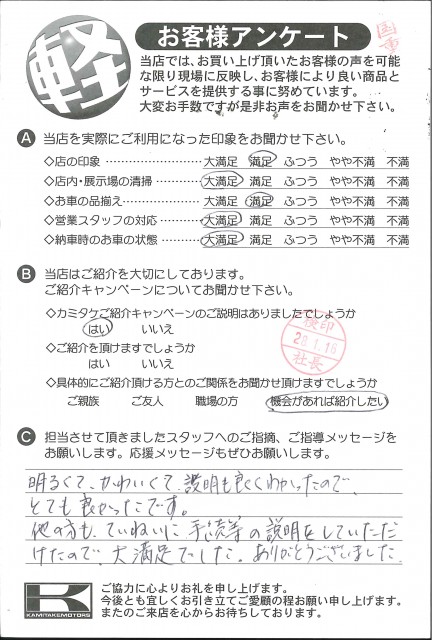 軽
お客様アンケート
当店では、お買い上げ頂いたお客様の声を可能
な限り現場に反映し、お客様により良い商品と
サービスを提供する事に努めています。
大変お手数ですが是非お声をお聞かせ下さい。
A 当店を実際にご利用になった印象をお聞かせ下さい。
◇店の印象 大満足 満足 ふつう やや不満 不満
◇店内・展示場の清掃 大満足 満足 ふつう やや不満 不満
◇お車の品揃え 大満足 満足 ふつう やや不満 不満
◇営業スタッフの対応 大満足 満足 ふつう やや不満 不満
◇納車時のお車の状態 大満足 満足 ふつう やや不満 不満
B 当店はご紹介を大切にしております。
ご紹介キャンペーンについてお聞かせ下さい。
◇カミタケご紹介キャンペーンのご説明はありましたでしょうか
はい いいえ
検印
28.1.16
社長
◇ご紹介を頂けますでしょうか
はい いいえ
◇具体的にご紹介頂ける方とのご関係をお聞かせ頂けますでしょうか
ご親族 ご友人 職場の方 機会があれば紹介したい
C 担当させて頂きましたスタッフへのご指摘、ご指導メッセージを
お願いします。応援メッセージもぜひお願いします。
明るくて、かわいくて、説明も良くわかったので、
とても良かったです。
他の方も、ていねいに手続等の説明をしていただ
けたので、大満足でした。ありがとうございました。
K
KAMITAKEMOTORS
ご協力に心よりお礼を申し上げます。
今後とも宜しくお引き立てご愛顧の程お願い申し上げます。
またのご来店を心からお待ちしております。